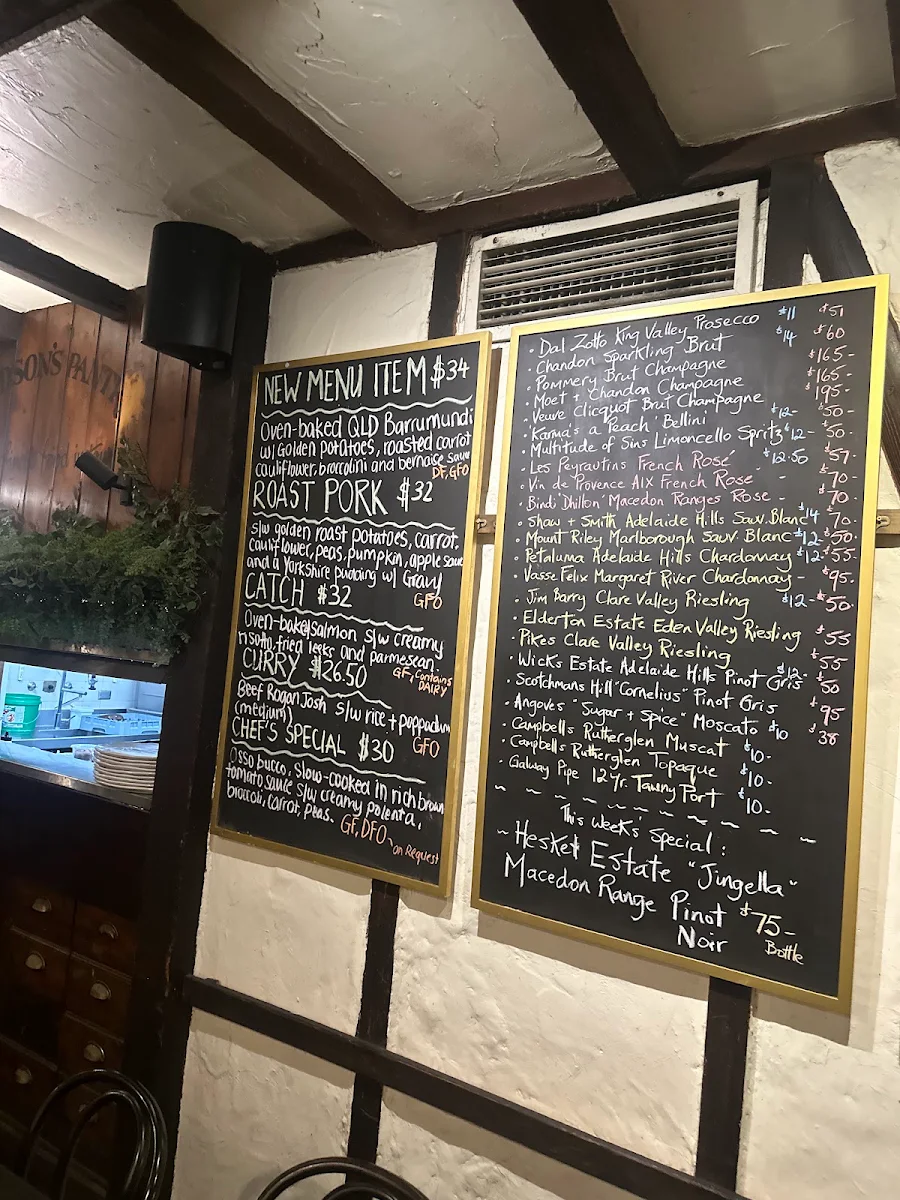 DSON'S PANT
NEW MENU ITEM $34
Oven-baked QLD Barrumundi
w/ Golden potatoes, roasted carrot
cauliflower, broccolini and bernaise sauce
DF, GFO
ROAST PORK $32
s/w golden roast potatoes, carrot,
cauliflower, peas, pumpkin, apple sauce
and a Yorkshire pudding w/ Gravy
GFO
CATCH $32
Oven-baked salmon s/w creamy
risotto, fried leeks and parmesan.
GF, Contains
DAIRY
CURRY $26.50
Beef Rogan Josh s/w rice + pappadum
(medium)
GFO
CHEF'S SPECIAL $30
Osso bucco, slow-cooked in rich brown
tomato sauce s/w creamy polenta,
broccoli, carrot, peas.
GF, DFO
on Request
• Dal Zotto King Valley Prosecco $11 $51
• Chandon Sparkling Brut $14 $60
• Pommery Brut Champagne $165-
• Moet + Chandon Champagne $165-
• Veuve Clicquot Brut Champagne $195-
• Karma's a 'Peach' Bellini $12- $50-
• Multitude of Sins Limoncello Spritz $12- $50-
• Les Peyrautins French Rosé $12.50 $57-
• Vin de Provence AIX French Rose - $70-
• Bindi 'Dhillon' Macedon Ranges Rose - $70-
• Shaw + Smith Adelaide Hills Sauv.Blanc $14 $70-
• Mount Riley Marlborough Sauv Blanc $12- $50-
• Petaluma Adelaide Hills Chardonnay $12- $55
• Vasse Felix Margaret River Chardonnay - $95-
• Jim Barry Clare Valley Riesling $12- $50-
• Elderton Estate Eden Valley Riesling $55
• Pikes Clare Valley Riesling $55
• Wicks Estate Adelaide Hills Pinot Gris $12- $50
• Scotchmans Hill "Cornelius" Pinot Gris $95
• Angoves "Sugar + Spice" Moscato $10 $38
• Campbells Rutherglen Muscat $10-
• Campbells Rutherglen Topaque $10-
• Galway Pipe 12 Yr. Tawny Port $10-
This week's special:
~ Hesket Estate "Jingella"
Macedon Range Pinot $75-
Noir Bottle